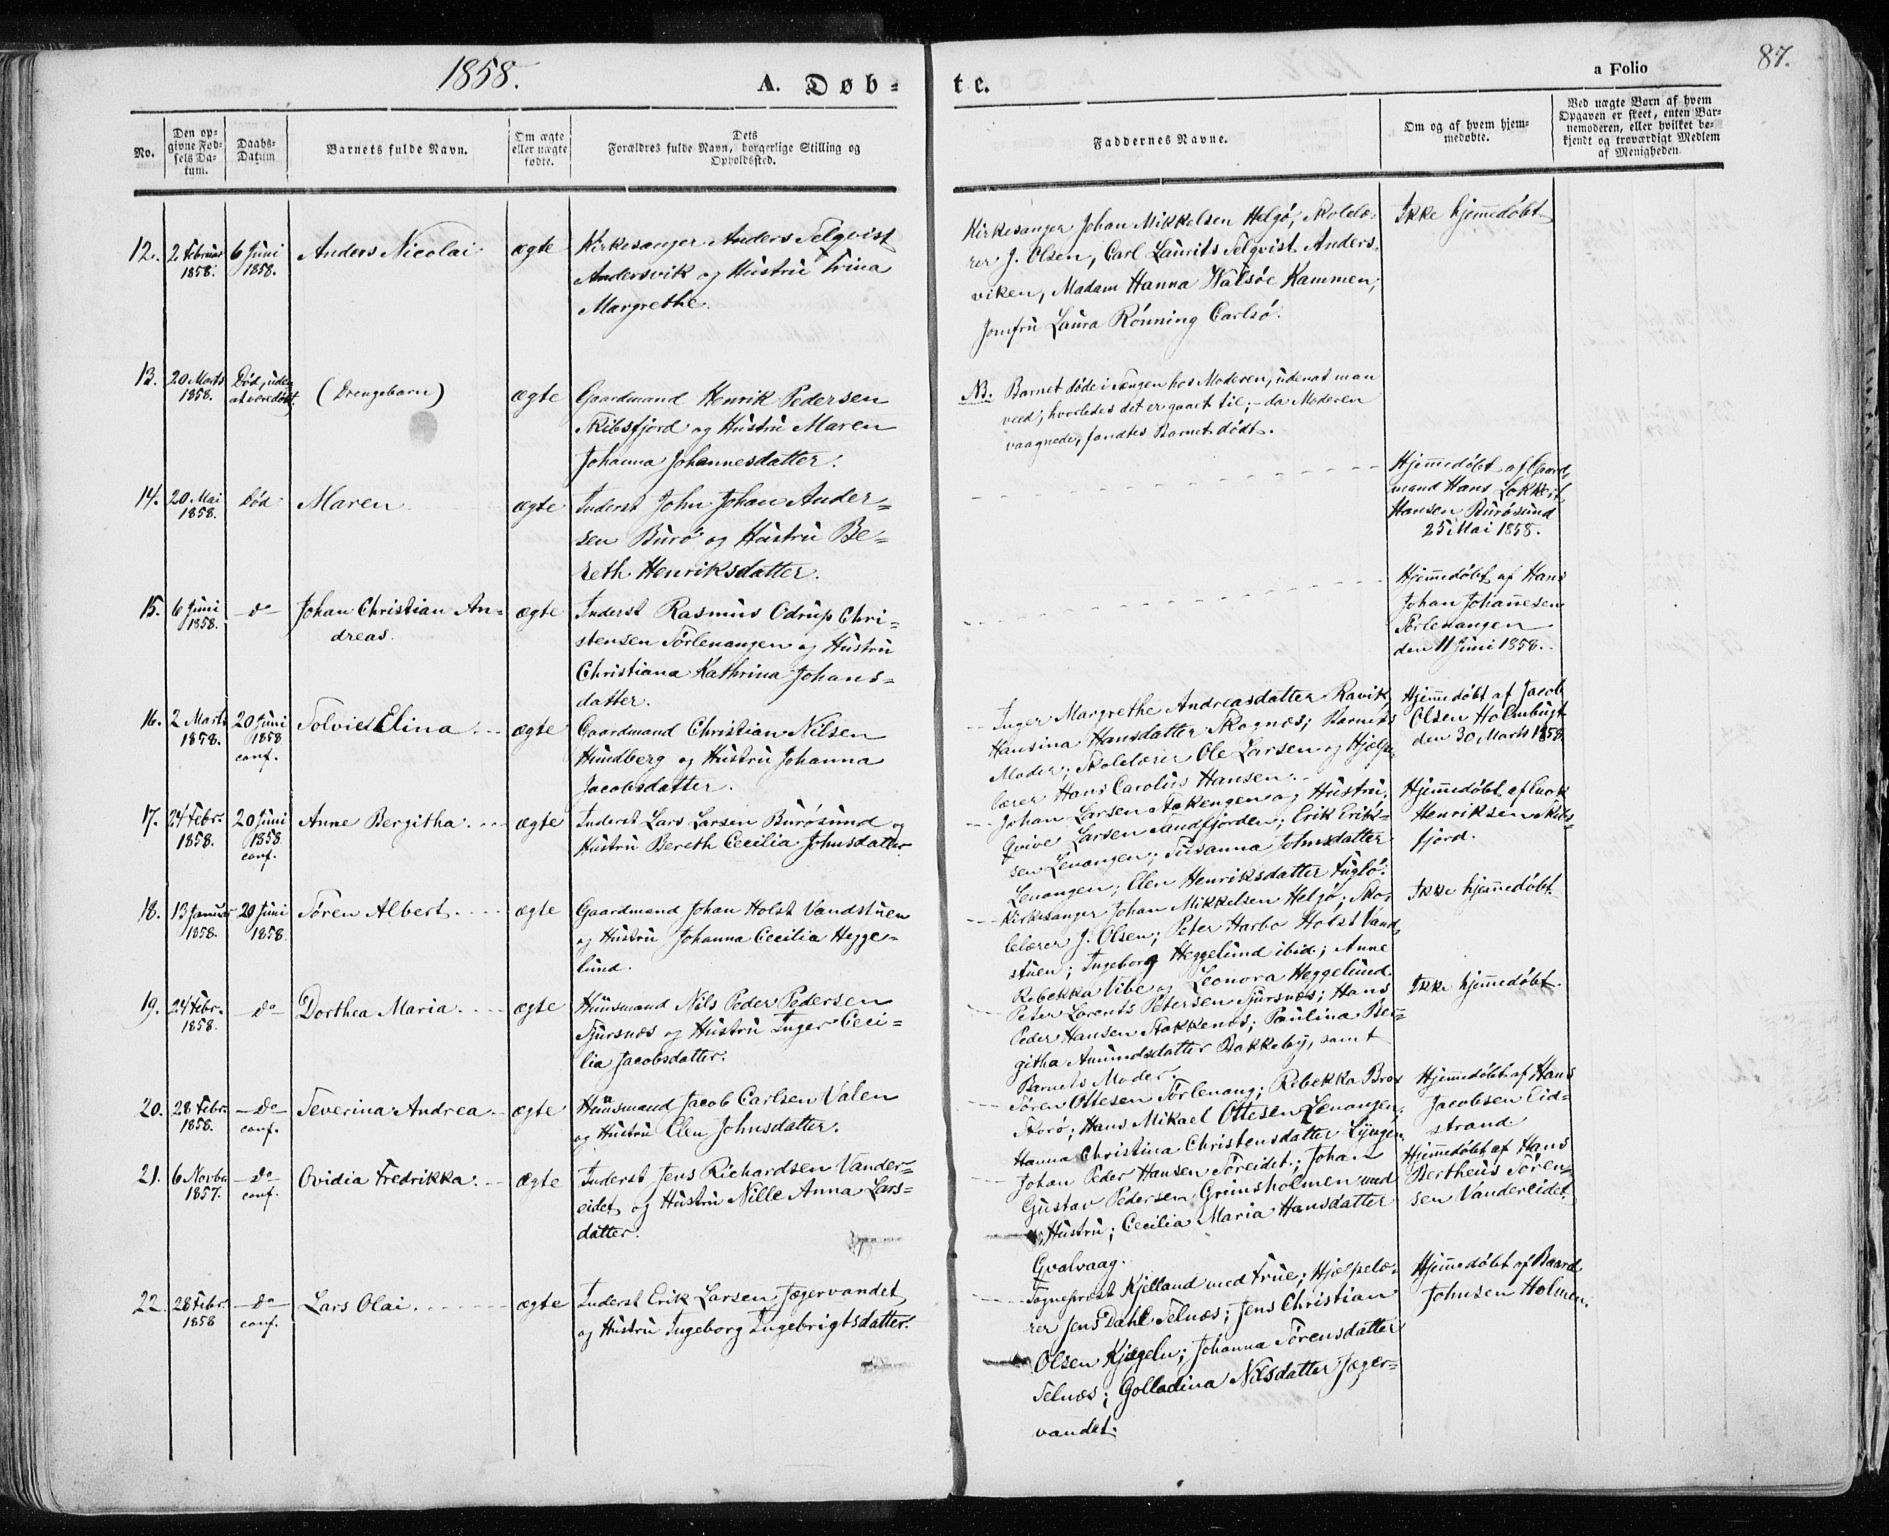 1858.
A. Døb-
te.
a Folio
87.
No.
Den op-
givne Fød-
sels Da-
tum.
Daabs-
Datum
Barnets fulde Navn.
Om ægte
eller uægte
fødte.
Dets
Forældres fulde Navn, borgerlige Stilling og
Opholdssted.
Faddernes Navne.
Om og af hvem hjem-
medøbte.
Ved uægte Børn af hvem
Opgaven er skeet, enten Bar-
nemoderen, eller hvilket be-
kjendt og troværdigt Medlem
af Menigheden.
12.
2 Februar
1858.
6 Juni
1858.
Anders Nicolai
ægte
Kirkesanger Anders Selqvist
Andersvik og Hustru Trina
Margrethe.
Kirkesanger Johan Mikkelsen Helgø, Skolelæ-
rer J. Olsen, Carl Laurits Selqvist Anders-
viken, Madam Hanna Walsøe Kammen,
Jomfru Laura Rönning Carlsö.
Ikke hjemedøbt
13.
20 Marts
1858.
Död, uden
at være döbt.
(Drengebarn)
ægte
Gaardmand Henrik Pedersen
Skibsfjord og Hustru Maren
Johanna Johannesdatter.
NB. Barnet døde i Sengen hos Moderen, uden at man
veed, hvorledes det er gaaet til; – da Moderen
vaagnede, fandtes Barnet dødt.
14.
20 Mai
1858.
Död
Maren
ægte
Inderst John Johan Ander-
sen Burö og Hustru Be-
reth Henriksdatter.
Hjemedøbt af Gaard
mand Hans
Hansen Burøsund
25 Mai 1858.
15.
6 Juni
1858.
do
Johan Christian An-
dreas.
ægte
Inderst Rasmus Odrup Chri-
stensen Sörlenangen og Hustru
Christiana Kathrina Johans-
datter.
Hjemedøbt af Hans
Johan Johanesen
Sörlenangen
den 11 Juni 1858.
16.
2 Marts
1858.
20 Juni
1858
conf.
Solvied Elina
ægte
Gaardmand Christian Nilsen
Hundberg og Hustru Johanna
Jacobsdatter.
Inger Margrethe Andreasdatter Ravik,
Hansina Hansdatter Skognæs; Barnets
Moder; Skolelærer Ole Larsen og Hjælpe-
lærer Hans Carolus Hansen.
Hjemedøbt af Jacob
Olsen Holmbugt
den 30 Marts 1858.
17.
24 Febr.
1858.
20 Juni
1858
conf.
Anne Bergitha
ægte
Inderst Lars Larsen Burösund og
Hustru Bereth Cecilia Johnsdatter
Johan Larsen Stakengen og Hustru,
Qvive Larsen Sandfjorden; Erik Erik-
sen Lenangen; Susanna Johnsdatter
Lenangen; Elen Henriksdatter Fuglö.
Hjemedøbt af Enok
Henriksen Skibs-
fjord.
18.
13 Januar
1858.
20 Juni
1858.
Sören Albert
ægte
Gaardmand Johan Holst Vandstuen
og Hustru Johanna Cecilia Hegge-
lund.
Kirkesanger Johan Mikkelsen Helgö; Sko-
lelærer J. Olsen; Peter Harbo Holst Vand-
stuen; Ingeborg Heggelund ibid; Anne
Rebekka Vibe og Leonora Heggelund.
Ikke hjemedøbt
19.
24 Febr.
1858.
do
Dorthea Maria
ægte
Huusmand Nils Peder Pedersen
Sjursnæs og Hustru Inger Ceci-
lia Jacobsdatter.
Peter Lorents Petersen Sjursnæs; Hans
Peder Hansen Stakkenæs; Paulina Ber-
githa Amundsdatter Bakkeby, samt
Barnets Moder.
Ikke hjemedøbt.
20.
28 Febr.
1858.
do
conf.
Severina Andrea
ægte
Huusmand Jacob Carlsen Valen
og Hustru Elen Johnsdatter.
Sören Ottesen Sörlenang; Rebekka
Skorö; Hans Mikael Ottesen Lenangen;
Hanna Christina Christensdatter Lyngen
Hjemedøbt af Hans
Jacobsen Eid-
strand
21.
6 Novbr.
1857.
do
conf.
Ovidia Fredrikka
ægte
Inderst Jens Richardsen Vander-
eidet og Hustru Nille Anna Lars-
datter.
Johan Peder Hansen Söreidet; Johan
Gustav Pedersen Grimsholmen med
Hustru; Cecilia Maria Hansdatter
Qvalvaag.
Hjemedøbt af Hans
Bertheus Sören
sen Vandereidet
22.
28 Febr.
1858
do
conf.
Lars Olai
ægte
Inderst Erik Larsen Jægervandet
og Hustru Ingeborg Ingebrigtsdatter.
Sogneprest Kjelland med Frue; Hjælpelæ-
rer Jens Dahl Selnæs; Jens Christian
Olsen Kjægeln; Johanna Sörensdatter
Selnæs; Golladina Nilsdatter Jæger-
vandet.
Hjemedøbt af Baard
Johnsen Holmen.